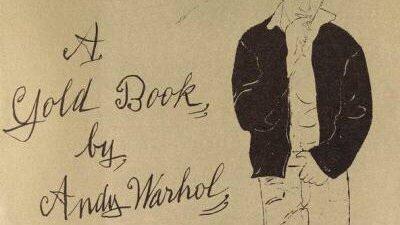 A
Gold Book
by
Andy Warhol